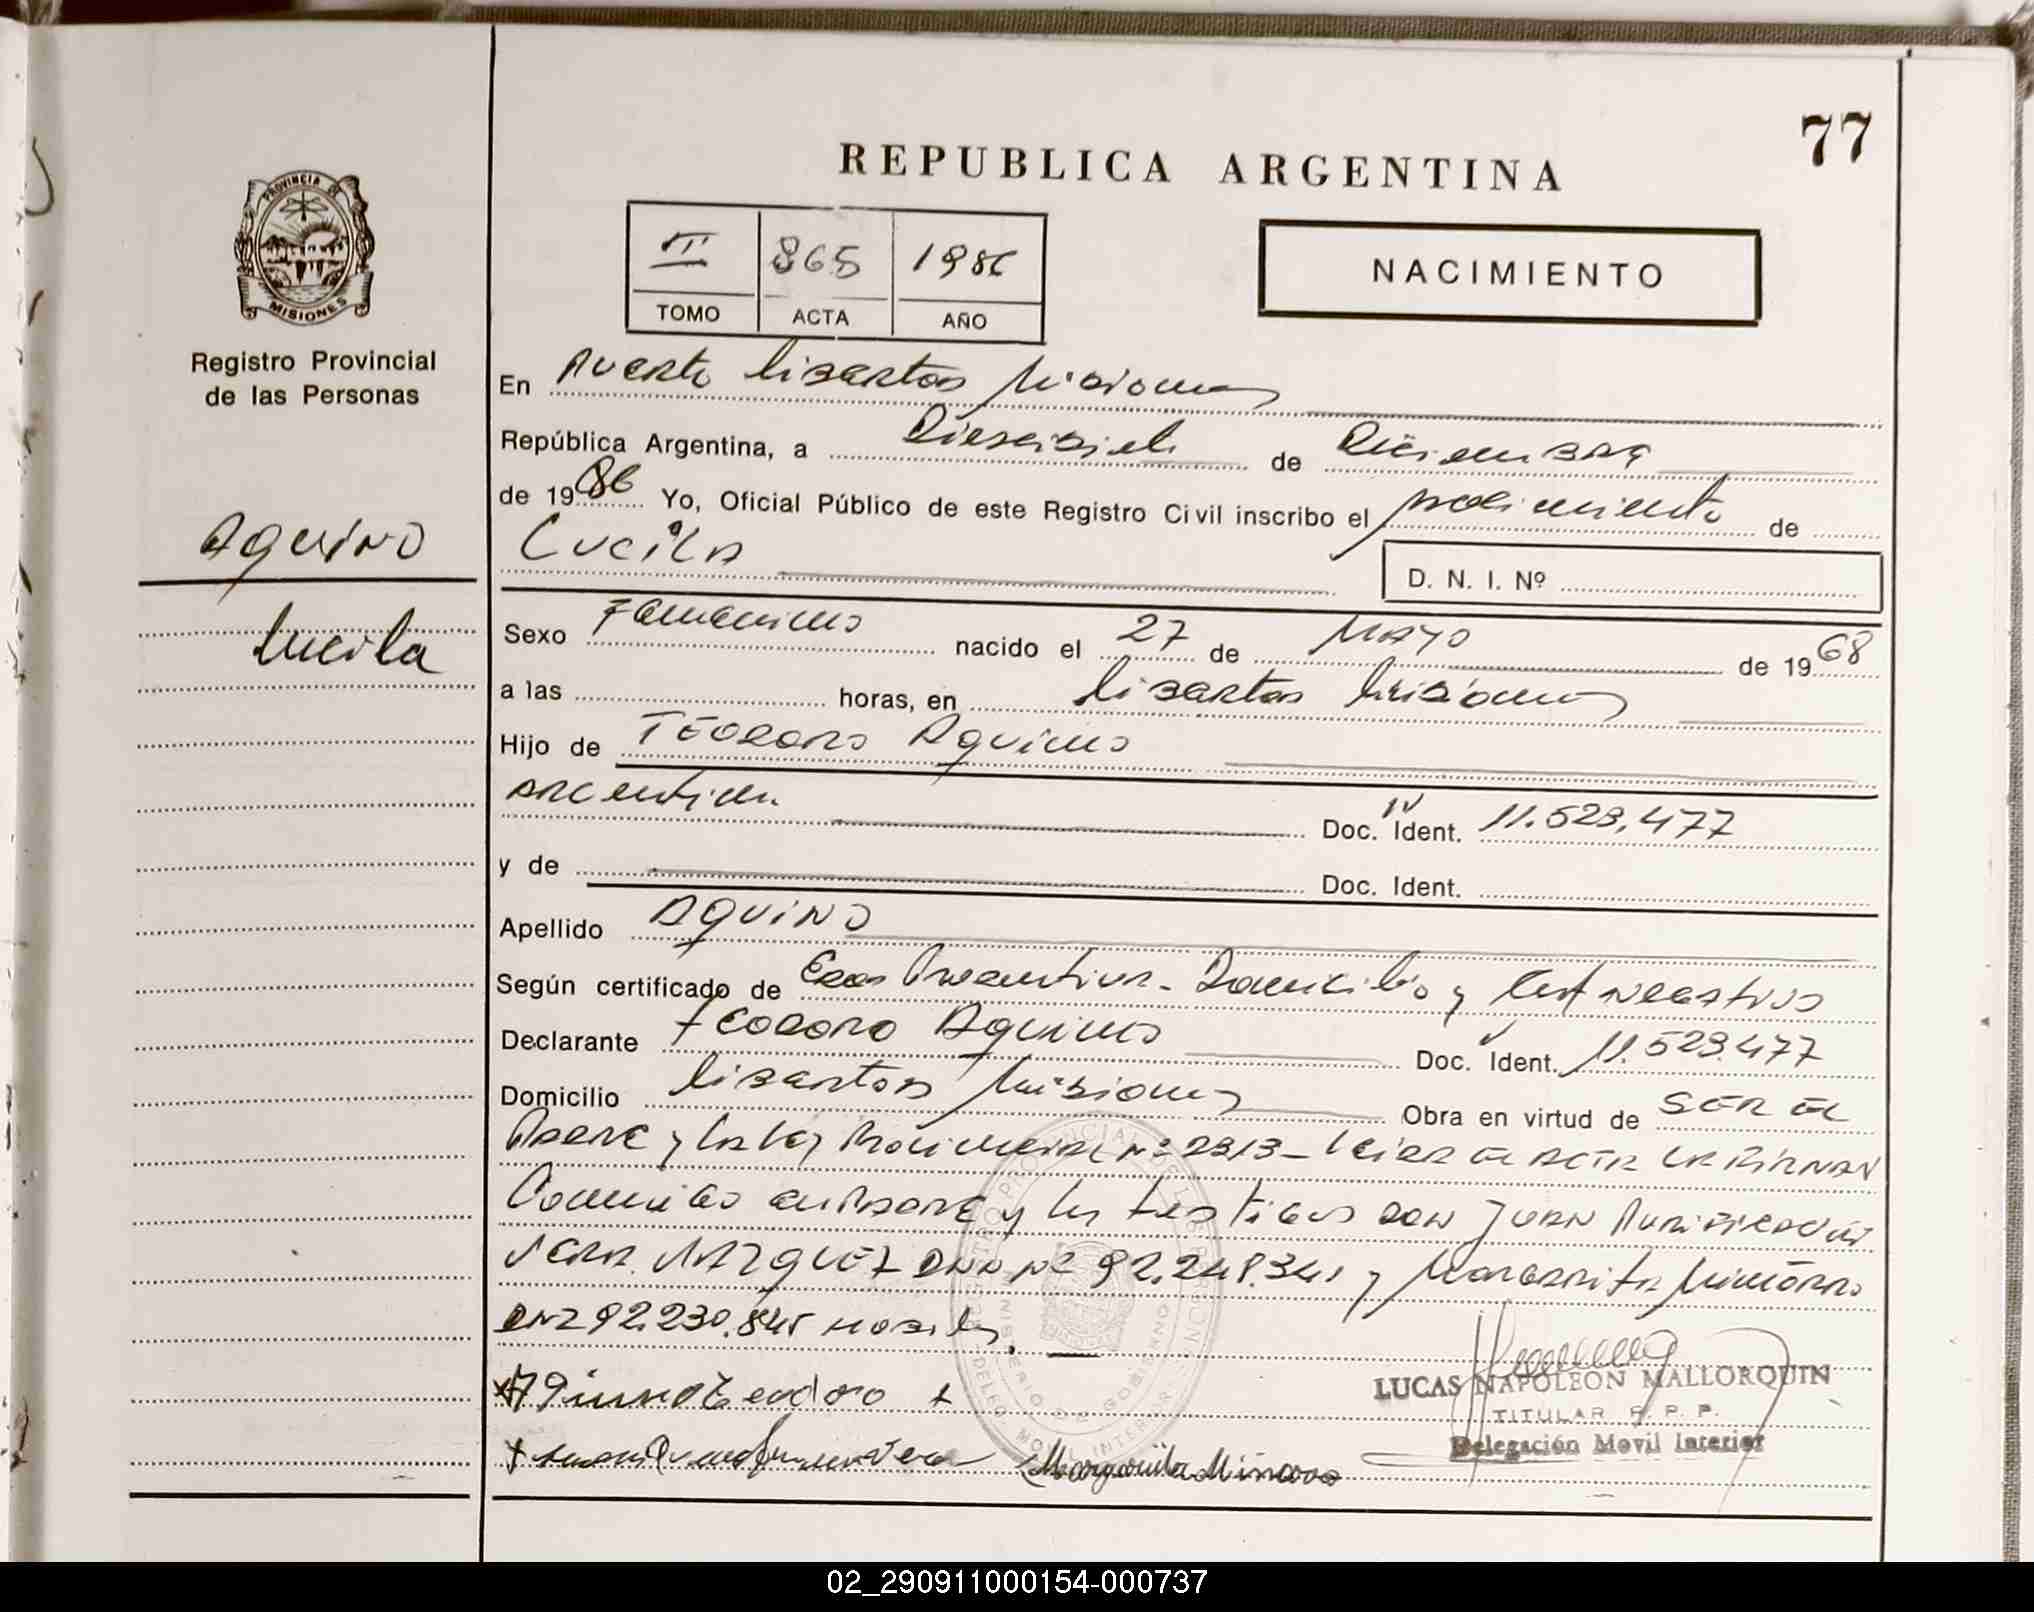 77
REPUBLICA ARGENTINA
PROVINCIA DE
MISIONES
III 865 1986
TOMO ACTA AÑO
NACIMIENTO
Registro Provincial
de las Personas
Aquino
Lucila
En Puerto Libertad Misiones
República Argentina, a Diesisiete de Diciembre
de 1986 Yo, Oficial Público de este Registro Civil inscribo el nacimiento de
Lucila
D. N. I. Nº
Sexo Femenino nacido el 27 de Mayo de 1968
a las horas, en Libertad Misiones
Hijo de Teodoro Aquino
Argentina Doc. Ident. 11.523.477
y de Doc. Ident.
Apellido Aquino
Según certificado de Edad Domicilio y Cert negativo
Declarante Teodoro Aquino Doc. Ident. 11.523.477
Domicilio Libertad Misiones Obra en virtud de SER EL
Padre y la Ley Provincial Nº 2313 - Leida el acta la firman
Conmigo el Padre y los testigos don Juan
Vera Marquez DNI Nº 92.248.341 y Margarita Minarro
DNI 92.230.845 Habiles
Aquino Teodoro
Margarita Minarro
LUCAS NAPOLEON MALLORQUIN
TITULAR R. P. P.
Delegación Movil Interior
02_290911000154-000737